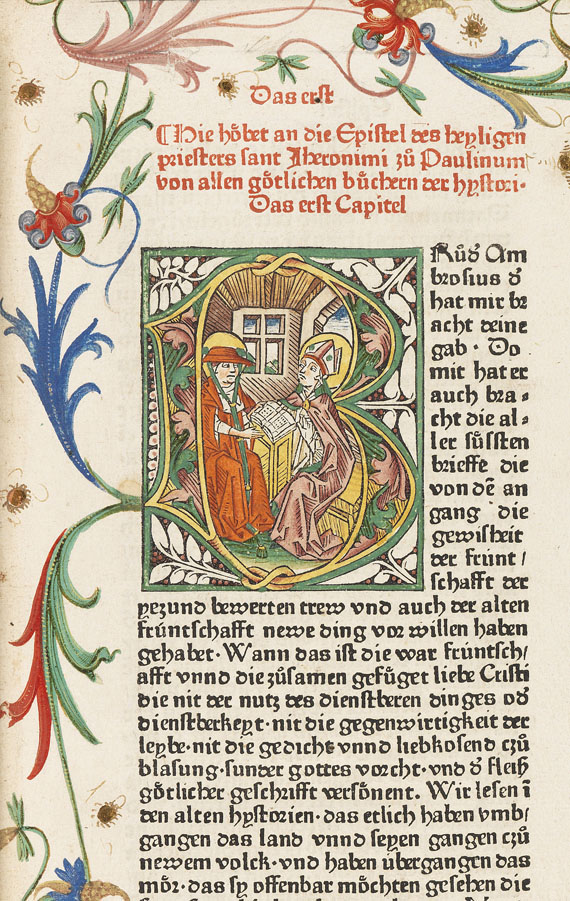 Das erst
Hie hoͤbet an die Epistel des heyligen
priesters sant Jheronimi zuͦ Paulinum
von allen goͤtlichen buͤchern der hystori·
Das erst Capitel
Ruͦd Am
brosius d
hat mir br
acht deine
gab · Do
mit hat er
auch bra⸗
cht die al⸗
ler suͤssten
brieffe die
von dē an
gang die
gewisheit
der frunt/
schafft der
yezund bewerten trew vnd auch der alten
fruntschafft newe ding vor willen haben
gehabet· Wann das ist die war fruntsch/
afft vnnd die zuͦsamen gefuͤget liebe Cristi
die nit der nutz des dienstberen dinges od
dienstberkeyt· nit die gegenwirtigkeit der
leybe· nit die gedicht vnnd liebkosend czuͦ
blasung· sunder gottes vorcht· vnd d fleiß
goͤtlicher geschrifft versoͤnent. Wir lesen ī
den alten hystorien· das etlich haben vmb/
gangen das land vnnd seyen gangen czuͦ
newem volck· vnd haben uͤbergangen das
moͤr· das sy offenbar moͤchten gesehen die